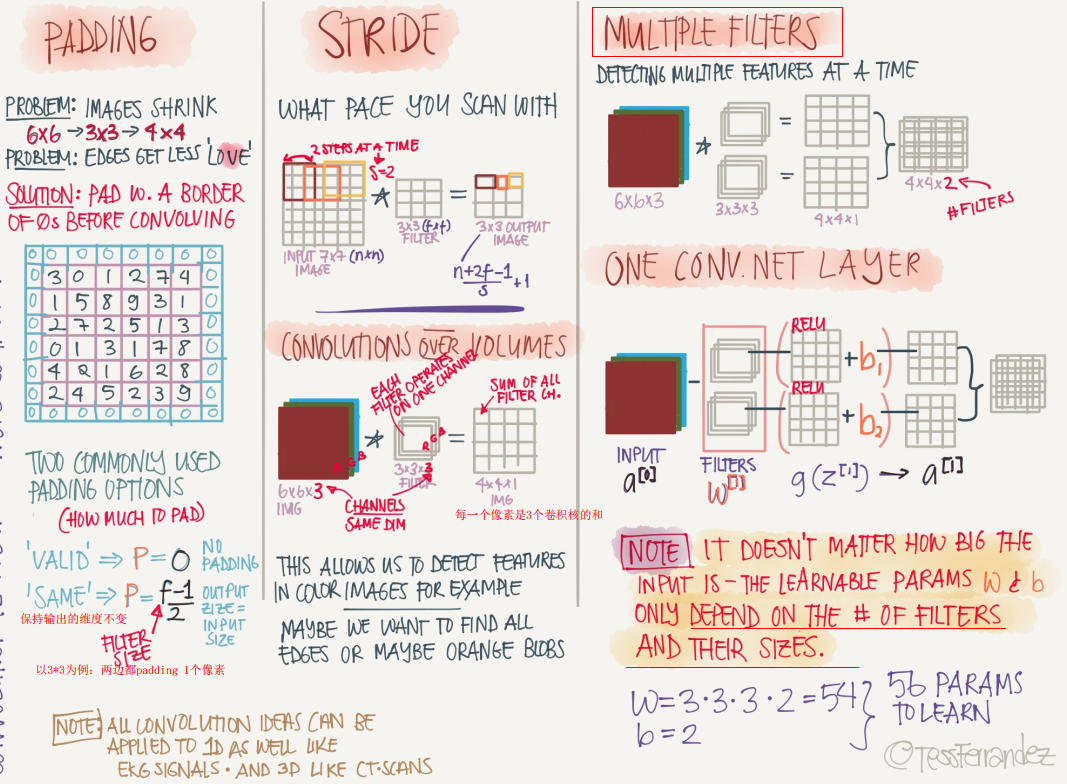 PADDING
PROBLEM: IMAGES SHRINK
6x6 → 3x3 → 4x4
PROBLEM: EDGES GET LESS 'LOVE'
SOLUTION: PAD W. A BORDER
OF 0s BEFORE CONVOLVING
0 0 0 0 0 0 0 0
0 3 0 1 2 7 4 0
0 1 5 8 9 3 1 0
0 2 7 2 5 1 3 0
0 0 1 3 1 7 8 0
0 4 2 1 6 2 8 0
0 2 4 5 2 3 9 0
0 0 0 0 0 0 0 0
TWO COMMONLY USED
PADDING OPTIONS
(HOW MUCH TO PAD)
'VALID' ⇒ P = 0 NO
PADDING
'SAME' ⇒ P = f-1/2 OUTPUT
SIZE =
INPUT
SIZE
保持输出的维度不变
FILTER
SIZE
以3*3为例：两边都padding 1个像素
NOTE: ALL CONVOLUTION IDEAS CAN BE
APPLIED TO 1D AS WELL LIKE
EKG SIGNALS · AND 3D LIKE CT-SCANS
STRIDE
WHAT PACE YOU SCAN WITH
2 STEPS AT A TIME
S=2
* =
INPUT 7x7 (nxn)
IMAGE
3x3 (fxf)
FILTER
3x3 OUTPUT
IMAGE
n+2f-1/s +1
CONVOLUTIONS OVER VOLUMES
EACH
FILTER OPERATES
ON ONE CHANNEL
SUM OF ALL
FILTER CH.
* =
R G B
R G B
6x6x3
IMG
3x3x3
FILTER
4x4x1
IMG
CHANNELS
SAME DIM
每一个像素是3个卷积核的和
THIS ALLOWS US TO DETECT FEATURES
IN COLOR IMAGES FOR EXAMPLE
MAYBE WE WANT TO FIND ALL
EDGES OR MAYBE ORANGE BLOBS
MULTIPLE FILTERS
DETECTING MULTIPLE FEATURES AT A TIME
* =
=
6x6x3
3x3x3
4x4x1
4x4x2
#FILTERS
ONE CONV. NET LAYER
RELU
( + b1 )
RELU
( + b2 )
INPUT
a[0]
FILTERS
W[1]
g(z[1]) → a[1]
NOTE IT DOESN'T MATTER HOW BIG THE
INPUT IS - THE LEARNABLE PARAMS W & b
ONLY DEPEND ON THE # OF FILTERS
AND THEIR SIZES.
W = 3·3·3·2 = 54
b = 2
} 56 PARAMS
TO LEARN
©TessFerrandez